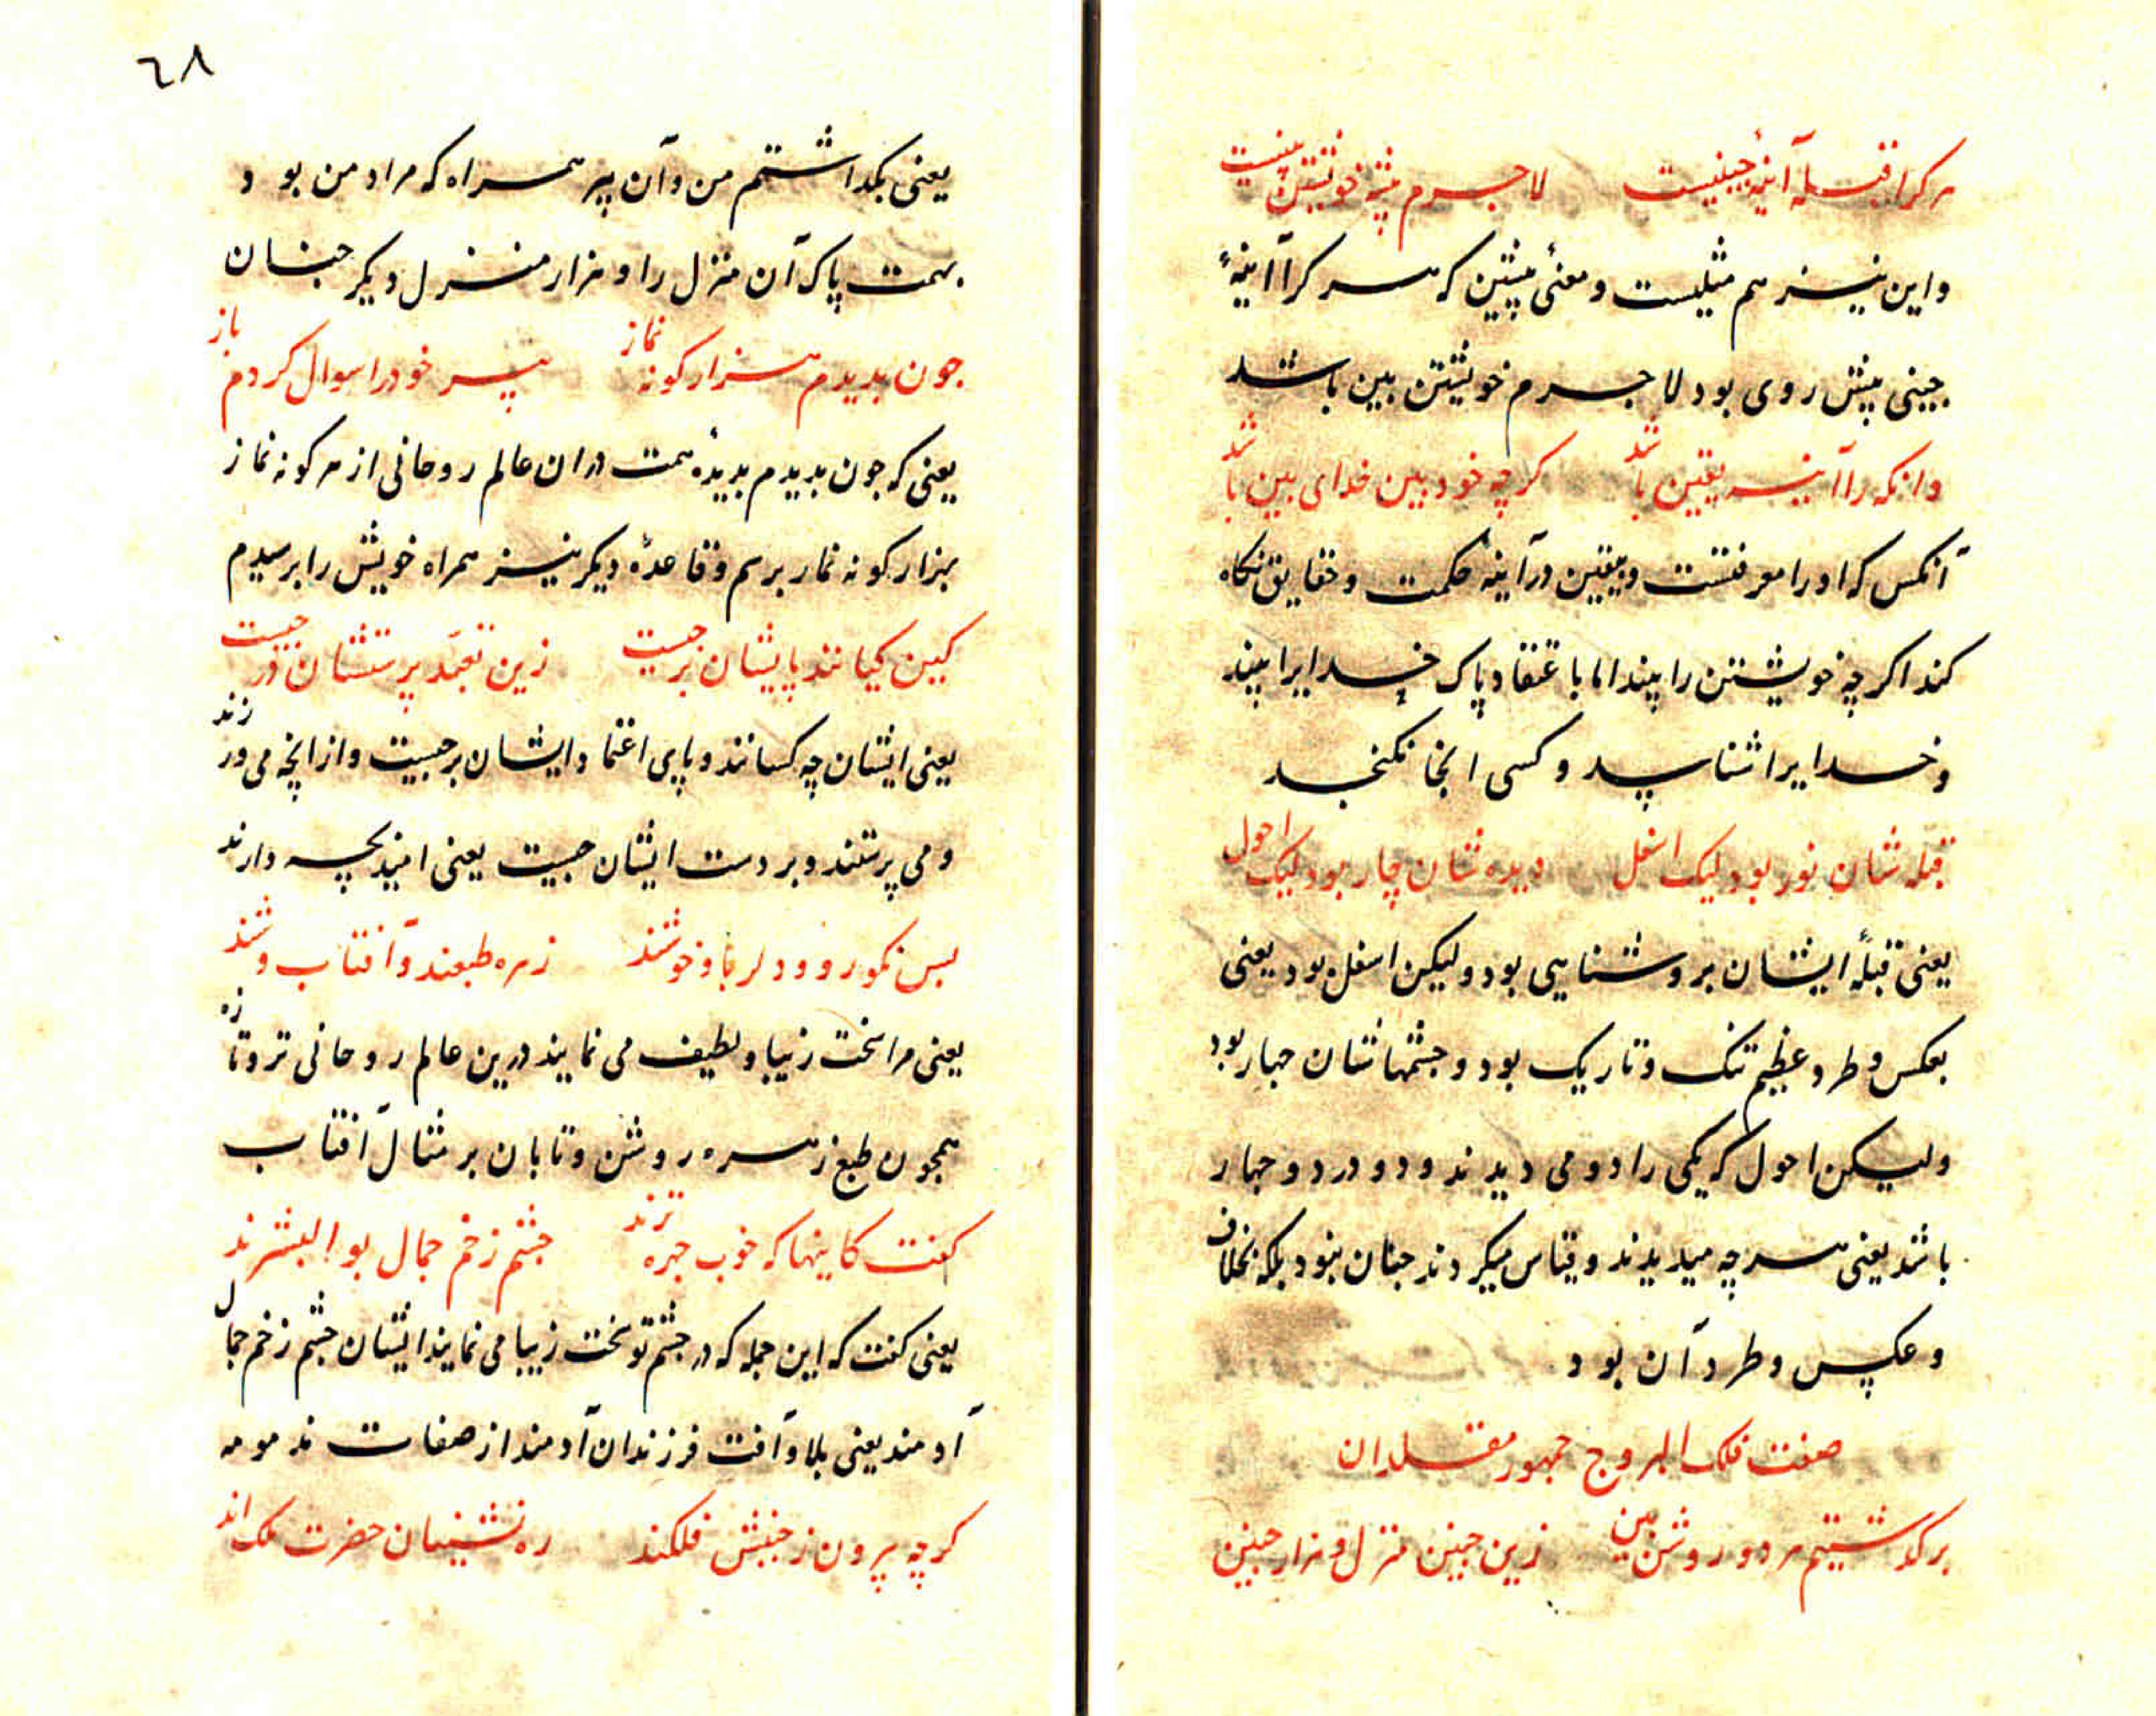 هرکرا قبله آینهٔ جبینیست لاجرم پیشه خویشتن بینیست
و این نیز هم مثلیست و معنئ پیشین که هر کرا آینهٔ
جبینی پیش روی بود لاجرم خویشتن بین باشد
وانکه را آینه یقین باشد کرچه خود بین خدای بین باشد
آنکس که او را معرفتست و بیقین در آینهٔ حکمت و حقایق نکاه
کند اکرچه خویشتن را بیند اما باعتقاد پاک خدایرا بیند
و خدایرا شناسد و کسی انجا نکنجد
قبله شان نور بود لیک اسفل دیده شان چار بود لیک احول
یعنی قبلهٔ ایشان بروشنایی بود ولیکن اسفل بود یعنی
بعکس و طرد عظیم تنک و تاریک بود و جشمهاشان جهار بود
ولیکن احول که یکی را دو می دیدند و دو در دو جهار
باشد یعنی هر چه میدیدند و قیاس میکردند جنان نبود بلکه بخلاف
و عکس و طرد آن بود
صفت فلک البروج جمهور مقلدان
برکذشتیم هر دو روشن بین زین جنین منزل و هزار جنین
٦٨
یعنی بکذاشتم من و آن پیر همراه که مراد من بود
بهمت پاک آن منزل را و هزار منزل دیکر جنان
جون بدیدم هزار کونه نماز پیر خود را سوال کردم باز
یعنی که جون بدیدم بدیدهٔ همت دران عالم روحانی از هر کونه نماز
بهزار کونه نماز برسم و قاعدهٔ دیکر نیز همراه خویش را برسیدم
کین کیانند پایشان برجیست زین تعبد پرستشان درجیست
یعنی ایشان چه کسانند و پای اعتماد ایشان برجیست و از انچه می ورزند
و می پرستند و بر دست ایشان جیست یعنی امید بچه دارند
بس نکورو و دلربا و خوشند زهره طبعند و آفتاب وشند
یعنی مرا سخت زیبا و لطیف می نمایند درین عالم روحانی تر و تازه
همجون طبع زهره روشن و تابان بر مثال آفتاب
کفت کاینها که خوب جهره ترند جشم زخم جمال بوالبشرند
یعنی کفت که این جمله که در جشم تو سخت زیبا می نمایند ایشان جشم زخم جمال
آدمند یعنی بلا و آفت فرزندان آدمند از صفات ذمومه
کرچه بیرون ز جنبش فلکند ره نشینان حضرت ملک اند